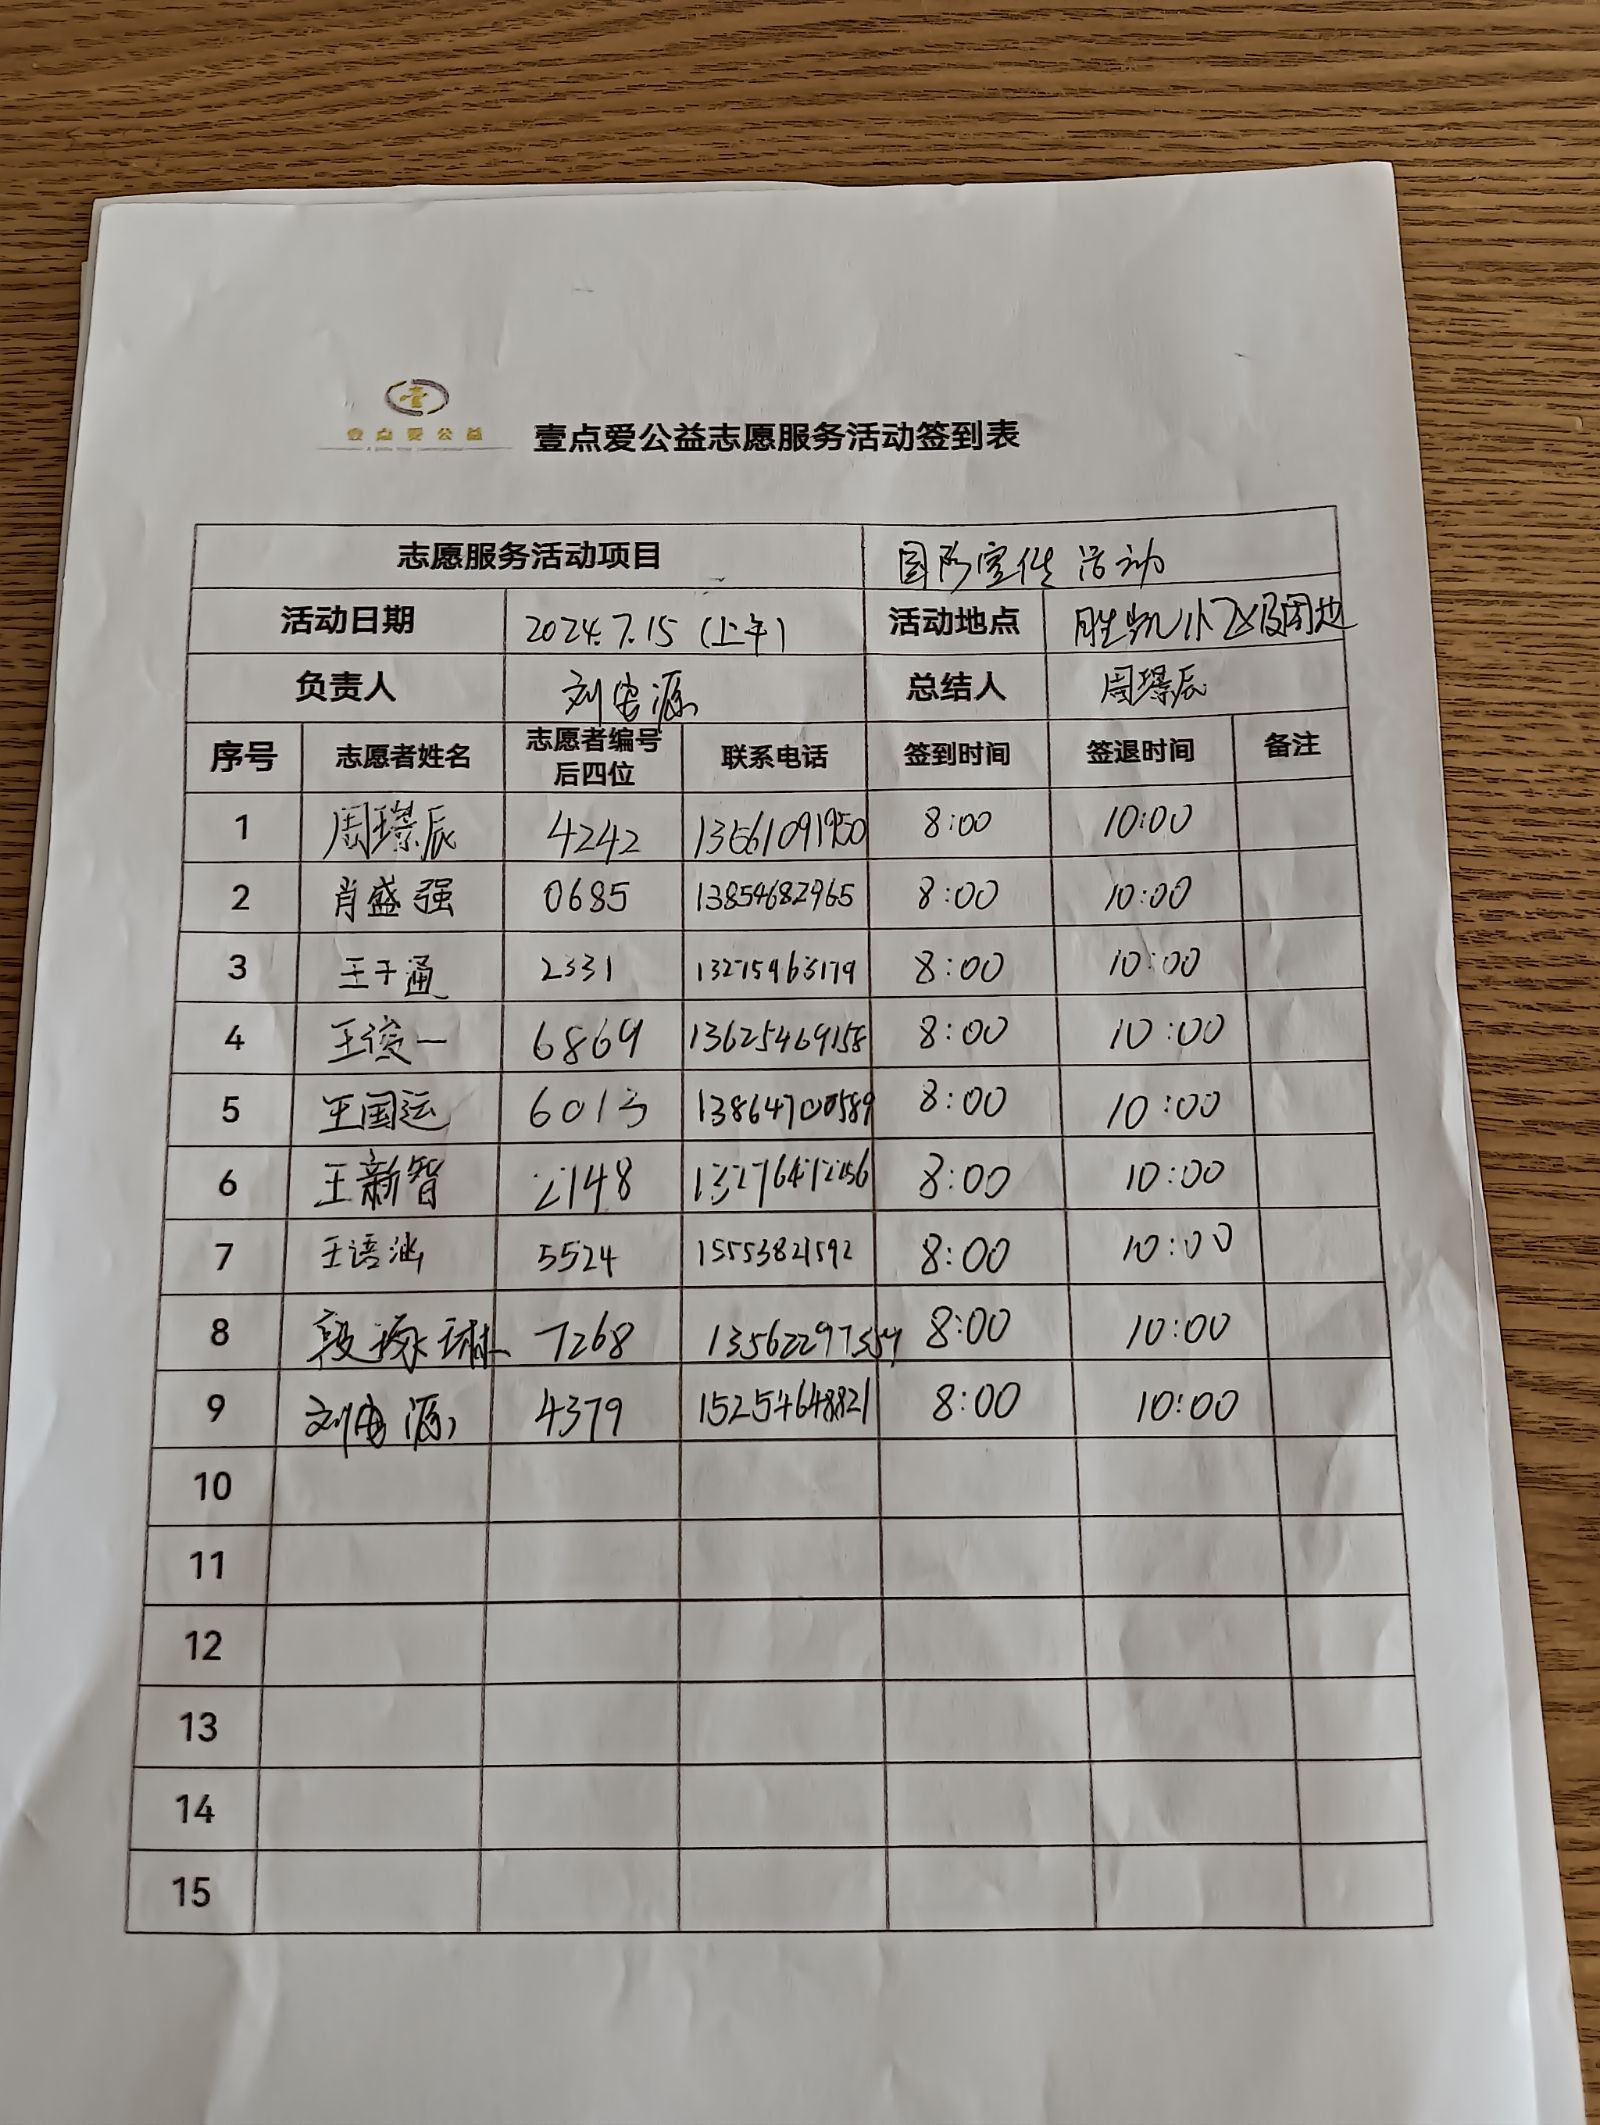 壹点爱公益
壹点爱公益志愿服务活动签到表
志愿服务活动项目 国防宣传活动
活动日期 2024.7.15（上午） 活动地点 胜凯小区及园地
负责人 刘安源 总结人 周璟辰
序号 志愿者姓名 志愿者编号后四位 联系电话 签到时间 签退时间 备注
1 周璟辰 4242 8:00 10:00
2 肖盛强 0685 13854682965 8:00 10:00
3 王子通 2331 13275463179 8:00 10:00
4 王俊一 6869 13625469158 8:00 10:00
5 王国运 6013 13864700589 8:00 10:00
6 王新智 2148 8:00 10:00
7 王语涵 5524 15553821592 8:00 10:00
8 段琳 7268 8:00 10:00
9 刘安源 4379 15254648821 8:00 10:00
10
11
12
13
14
15